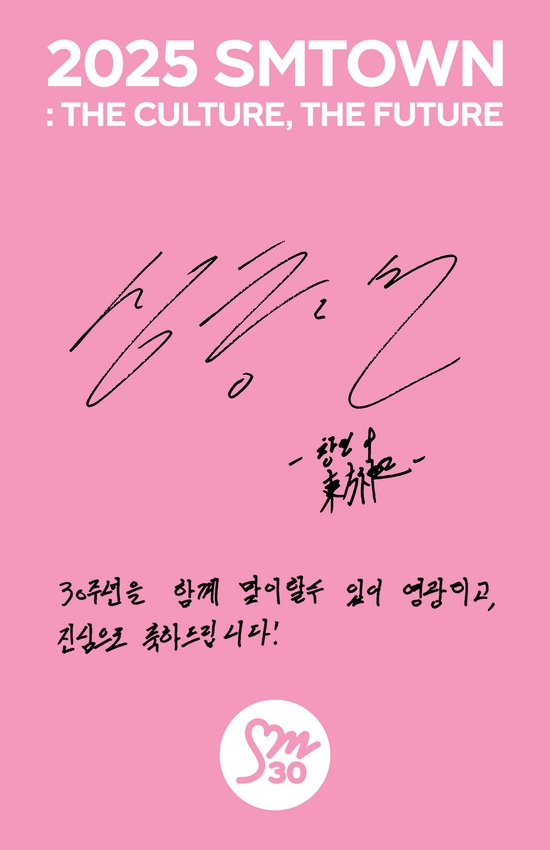 2025 SMTOWN
: THE CULTURE, THE FUTURE
東方神起
30주년을 함께 맞이할수 있어 영광이고,
진심으로 축하드립니다!
SM
30